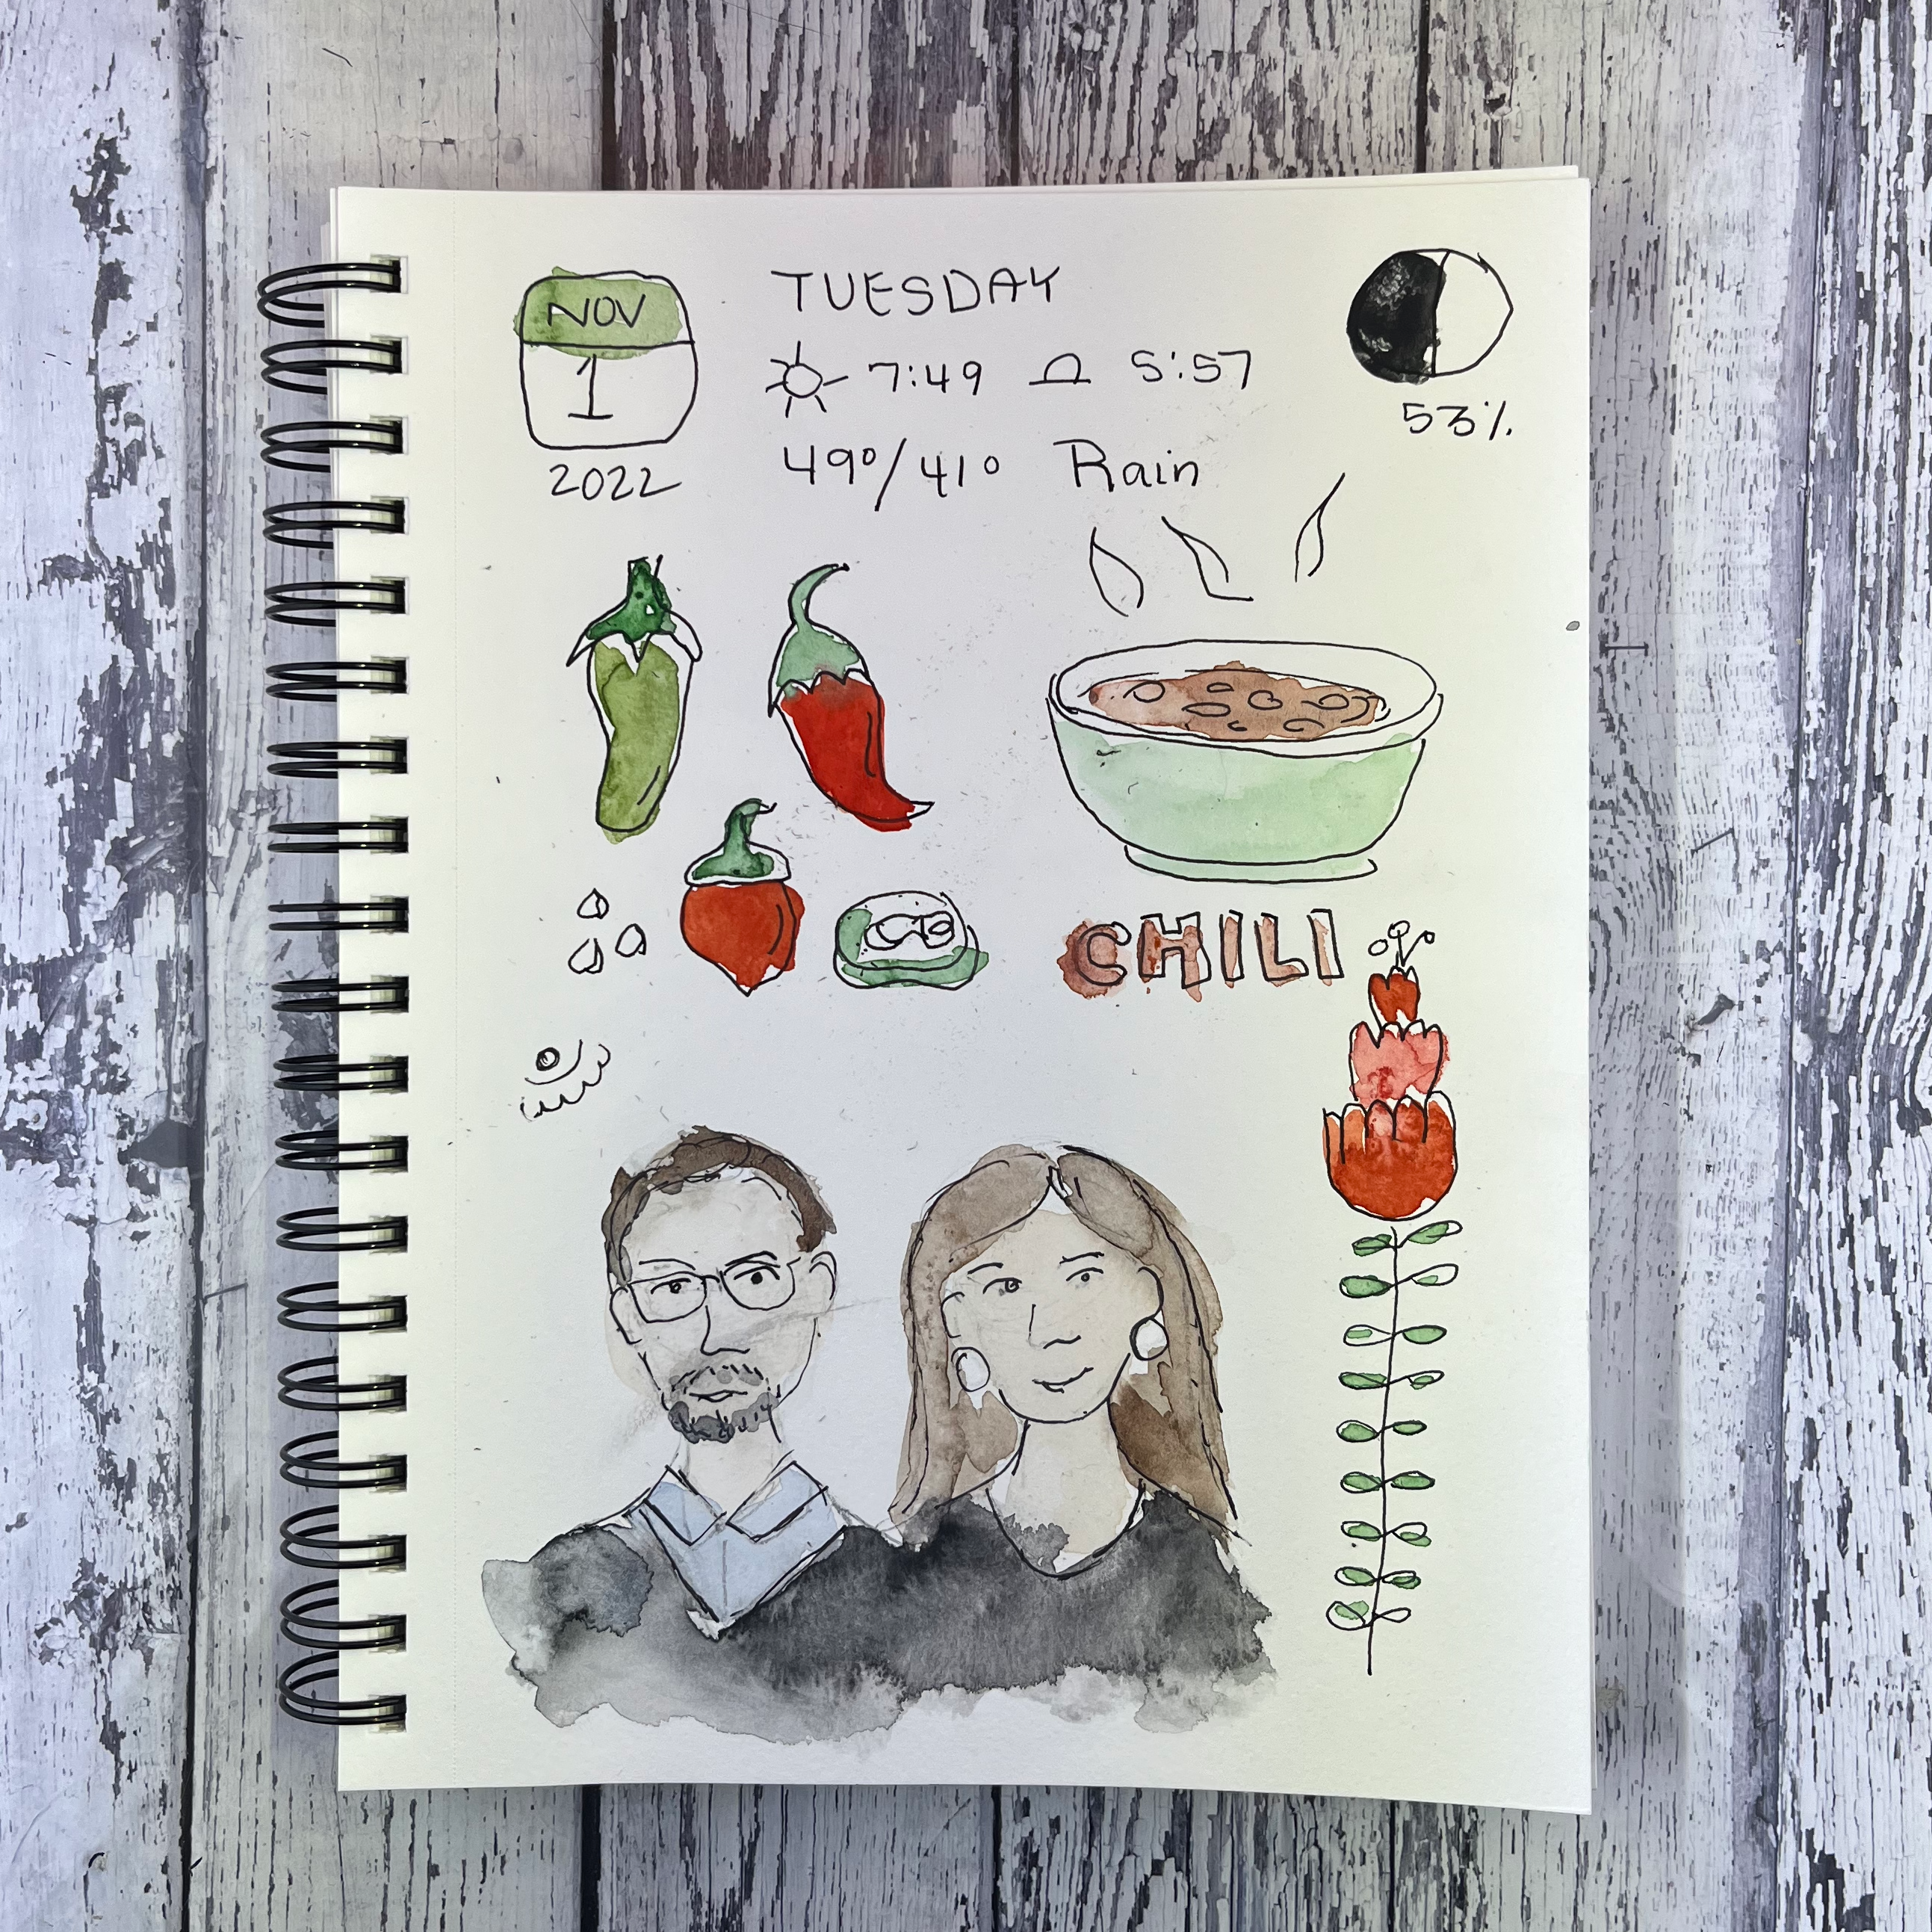 NOV
1
2022
TUESDAY
7:49 5:57
49°/41° Rain
53%
CHILI